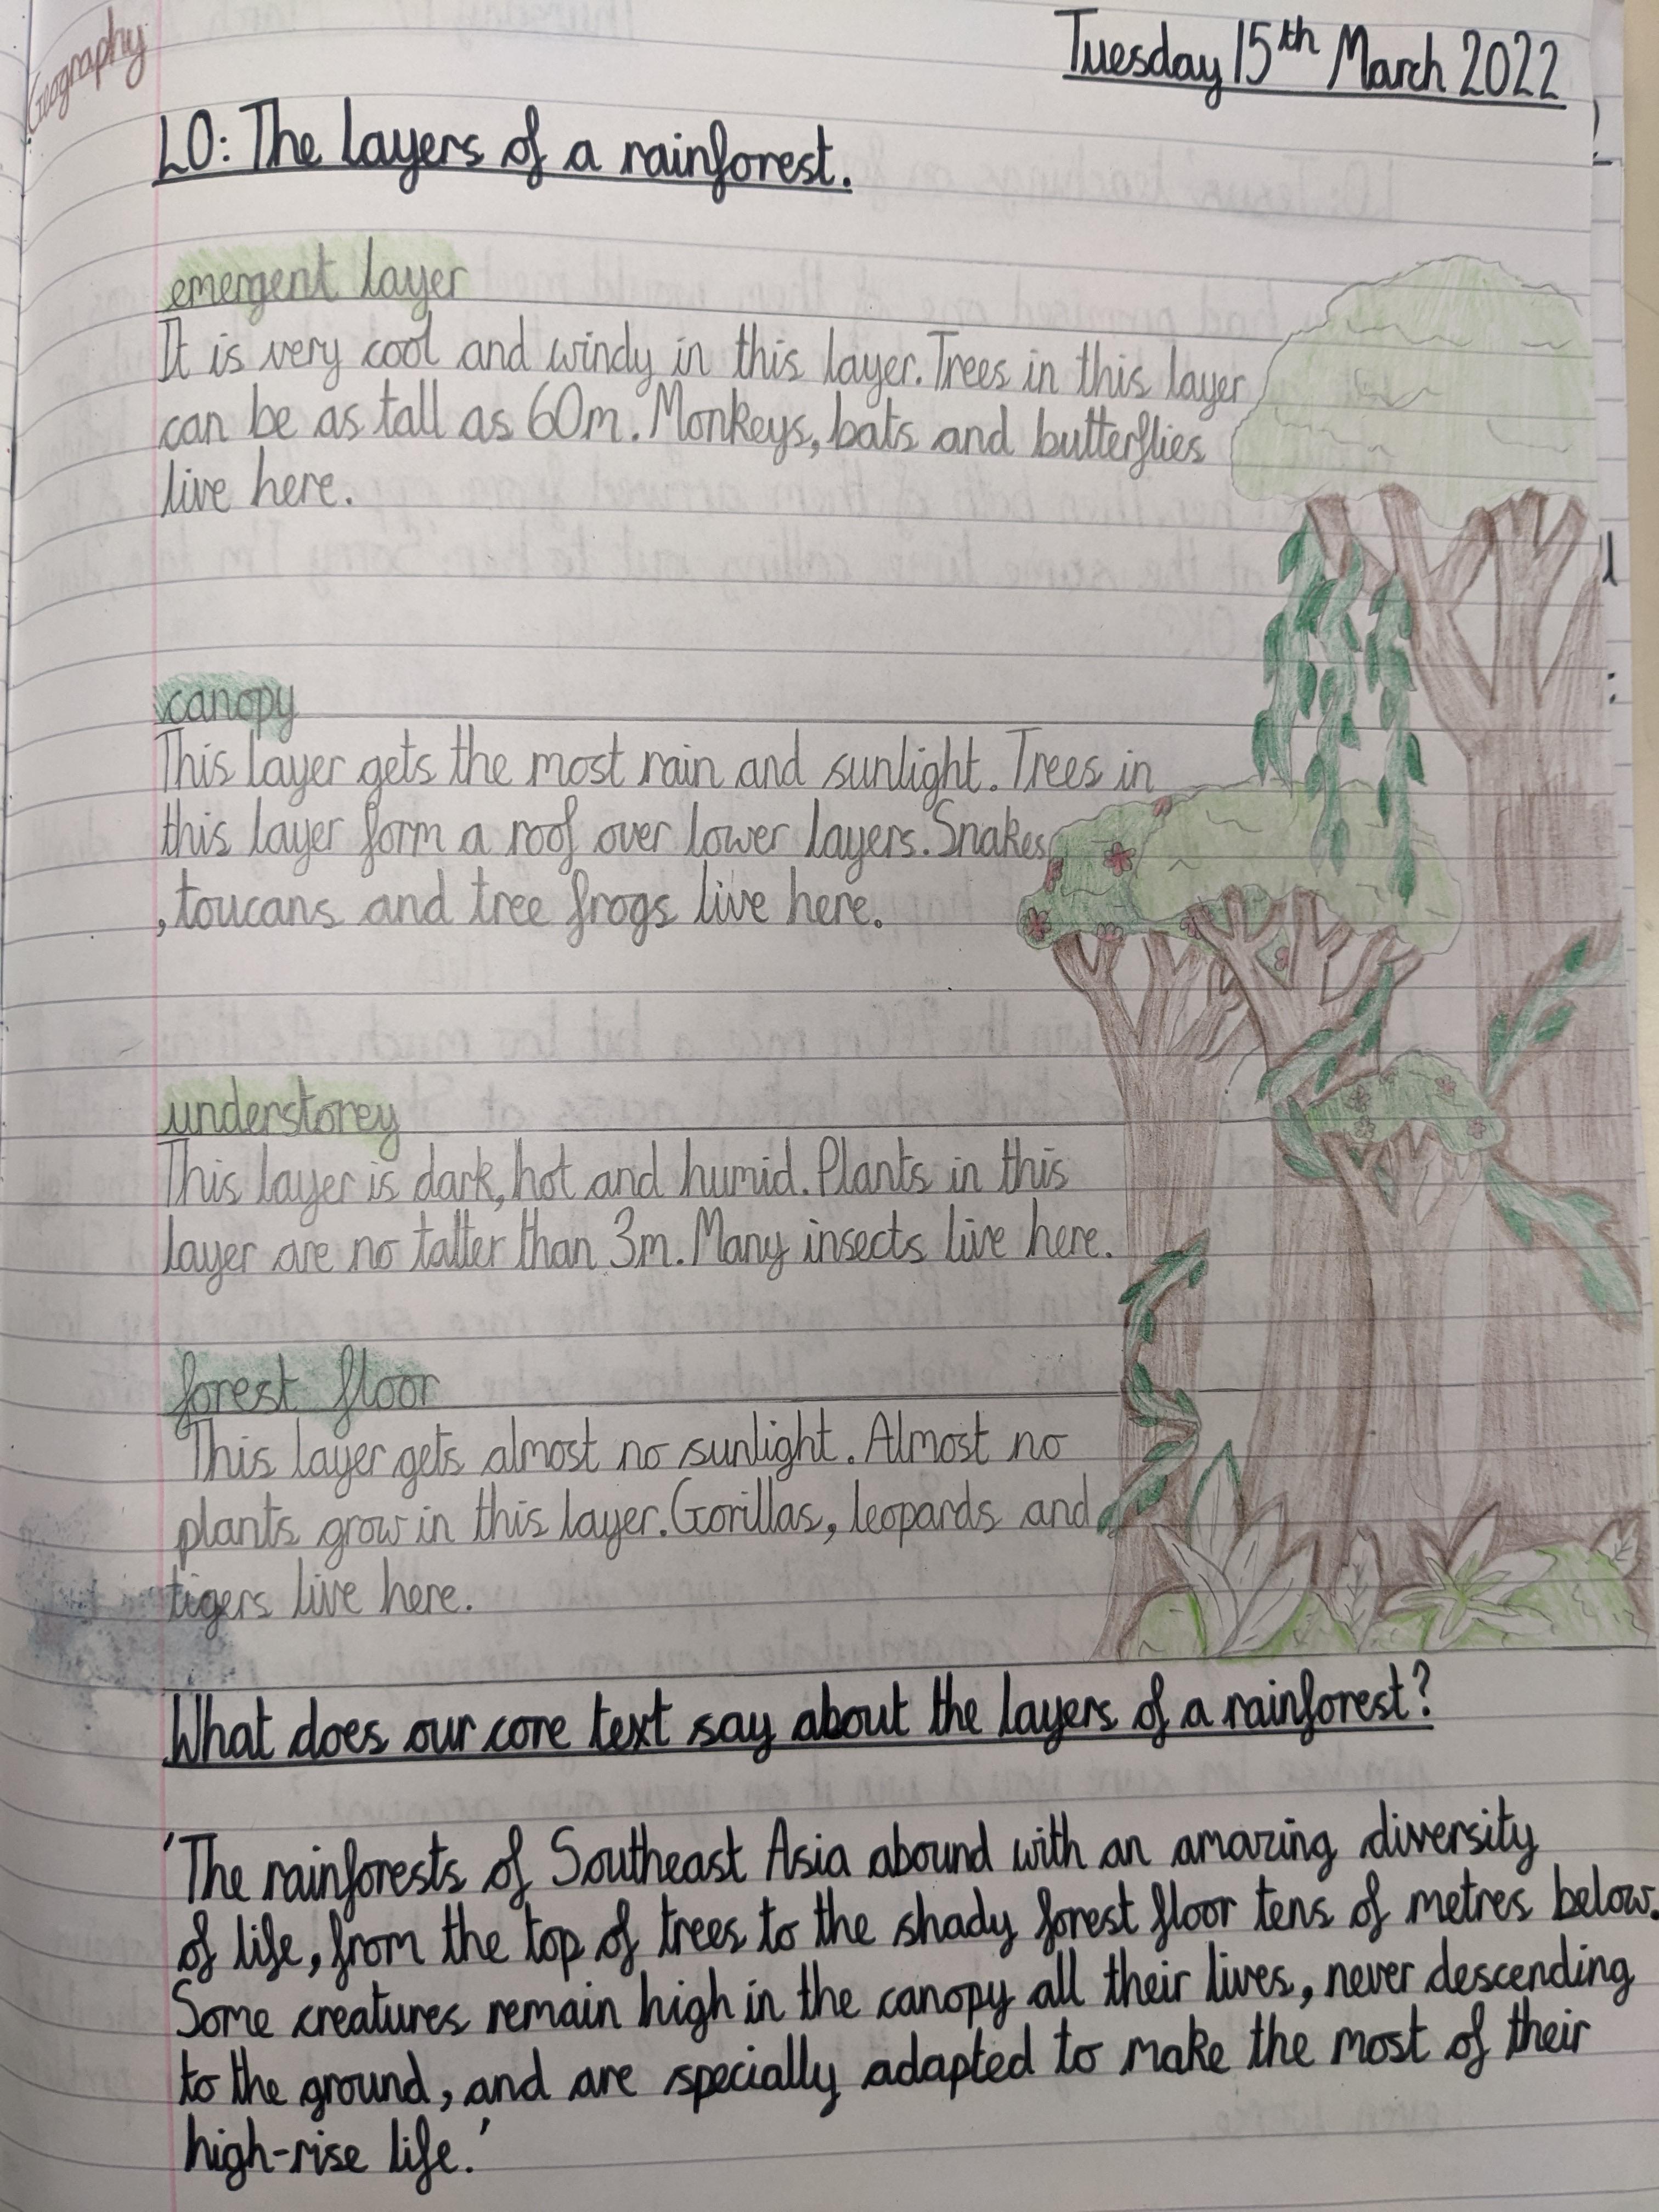 Geography
Tuesday 15th March 2022
LO: The layers of a rainforest.
emergent layer
It is very cool and windy in this layer. Trees in this layer
can be as tall as 60m. Monkeys, bats and butterflies
live here.
canopy
This layer gets the most rain and sunlight. Trees in
this layer form a roof over lower layers. Snakes
, toucans and tree frogs live here.
understorey
This layer is dark, hot and humid. Plants in this
layer are no taller than 3m. Many insects live here.
forest floor
This layer gets almost no sunlight. Almost no
plants grow in this layer. Gorillas, leopards and
tigers live here.
What does our core text say about the layers of a rainforest?
'The rainforests of Southeast Asia abound with an amazing diversity
of life, from the top of trees to the shady forest floor tens of metres below.
Some creatures remain high in the canopy all their lives, never descending
to the ground, and are specially adapted to make the most of their
high-rise life.'